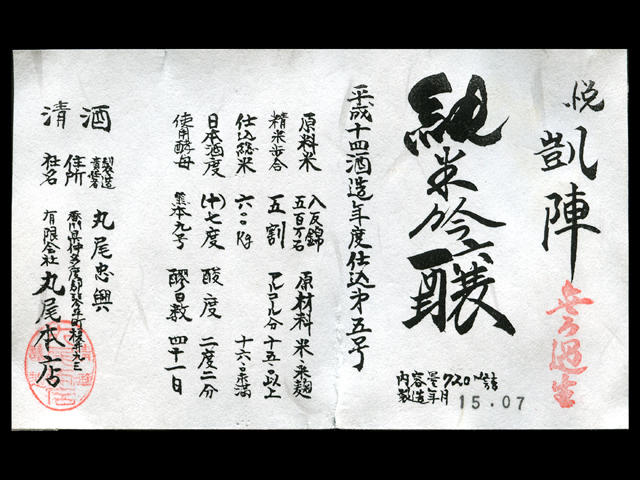 悦
凱陣
無ろ過生
純米吟醸
内容量 720ml詰
製造年月 15.07
平成十四酒造年度仕込第五号
原料米 八反錦 五百万石
原材料 米・米麹
精米歩合 五割
アルコール分 十五・以上 十六・未満
仕込総米 六〇〇kg
日本酒度 (+)七度
酸度 二度二分
使用酵母 熊本九号
醪日数 四十一日
清酒
製造責任者 丸尾忠興
住所 香川県仲多度郡琴平町榎井九三
社名 有限会社 丸尾本店